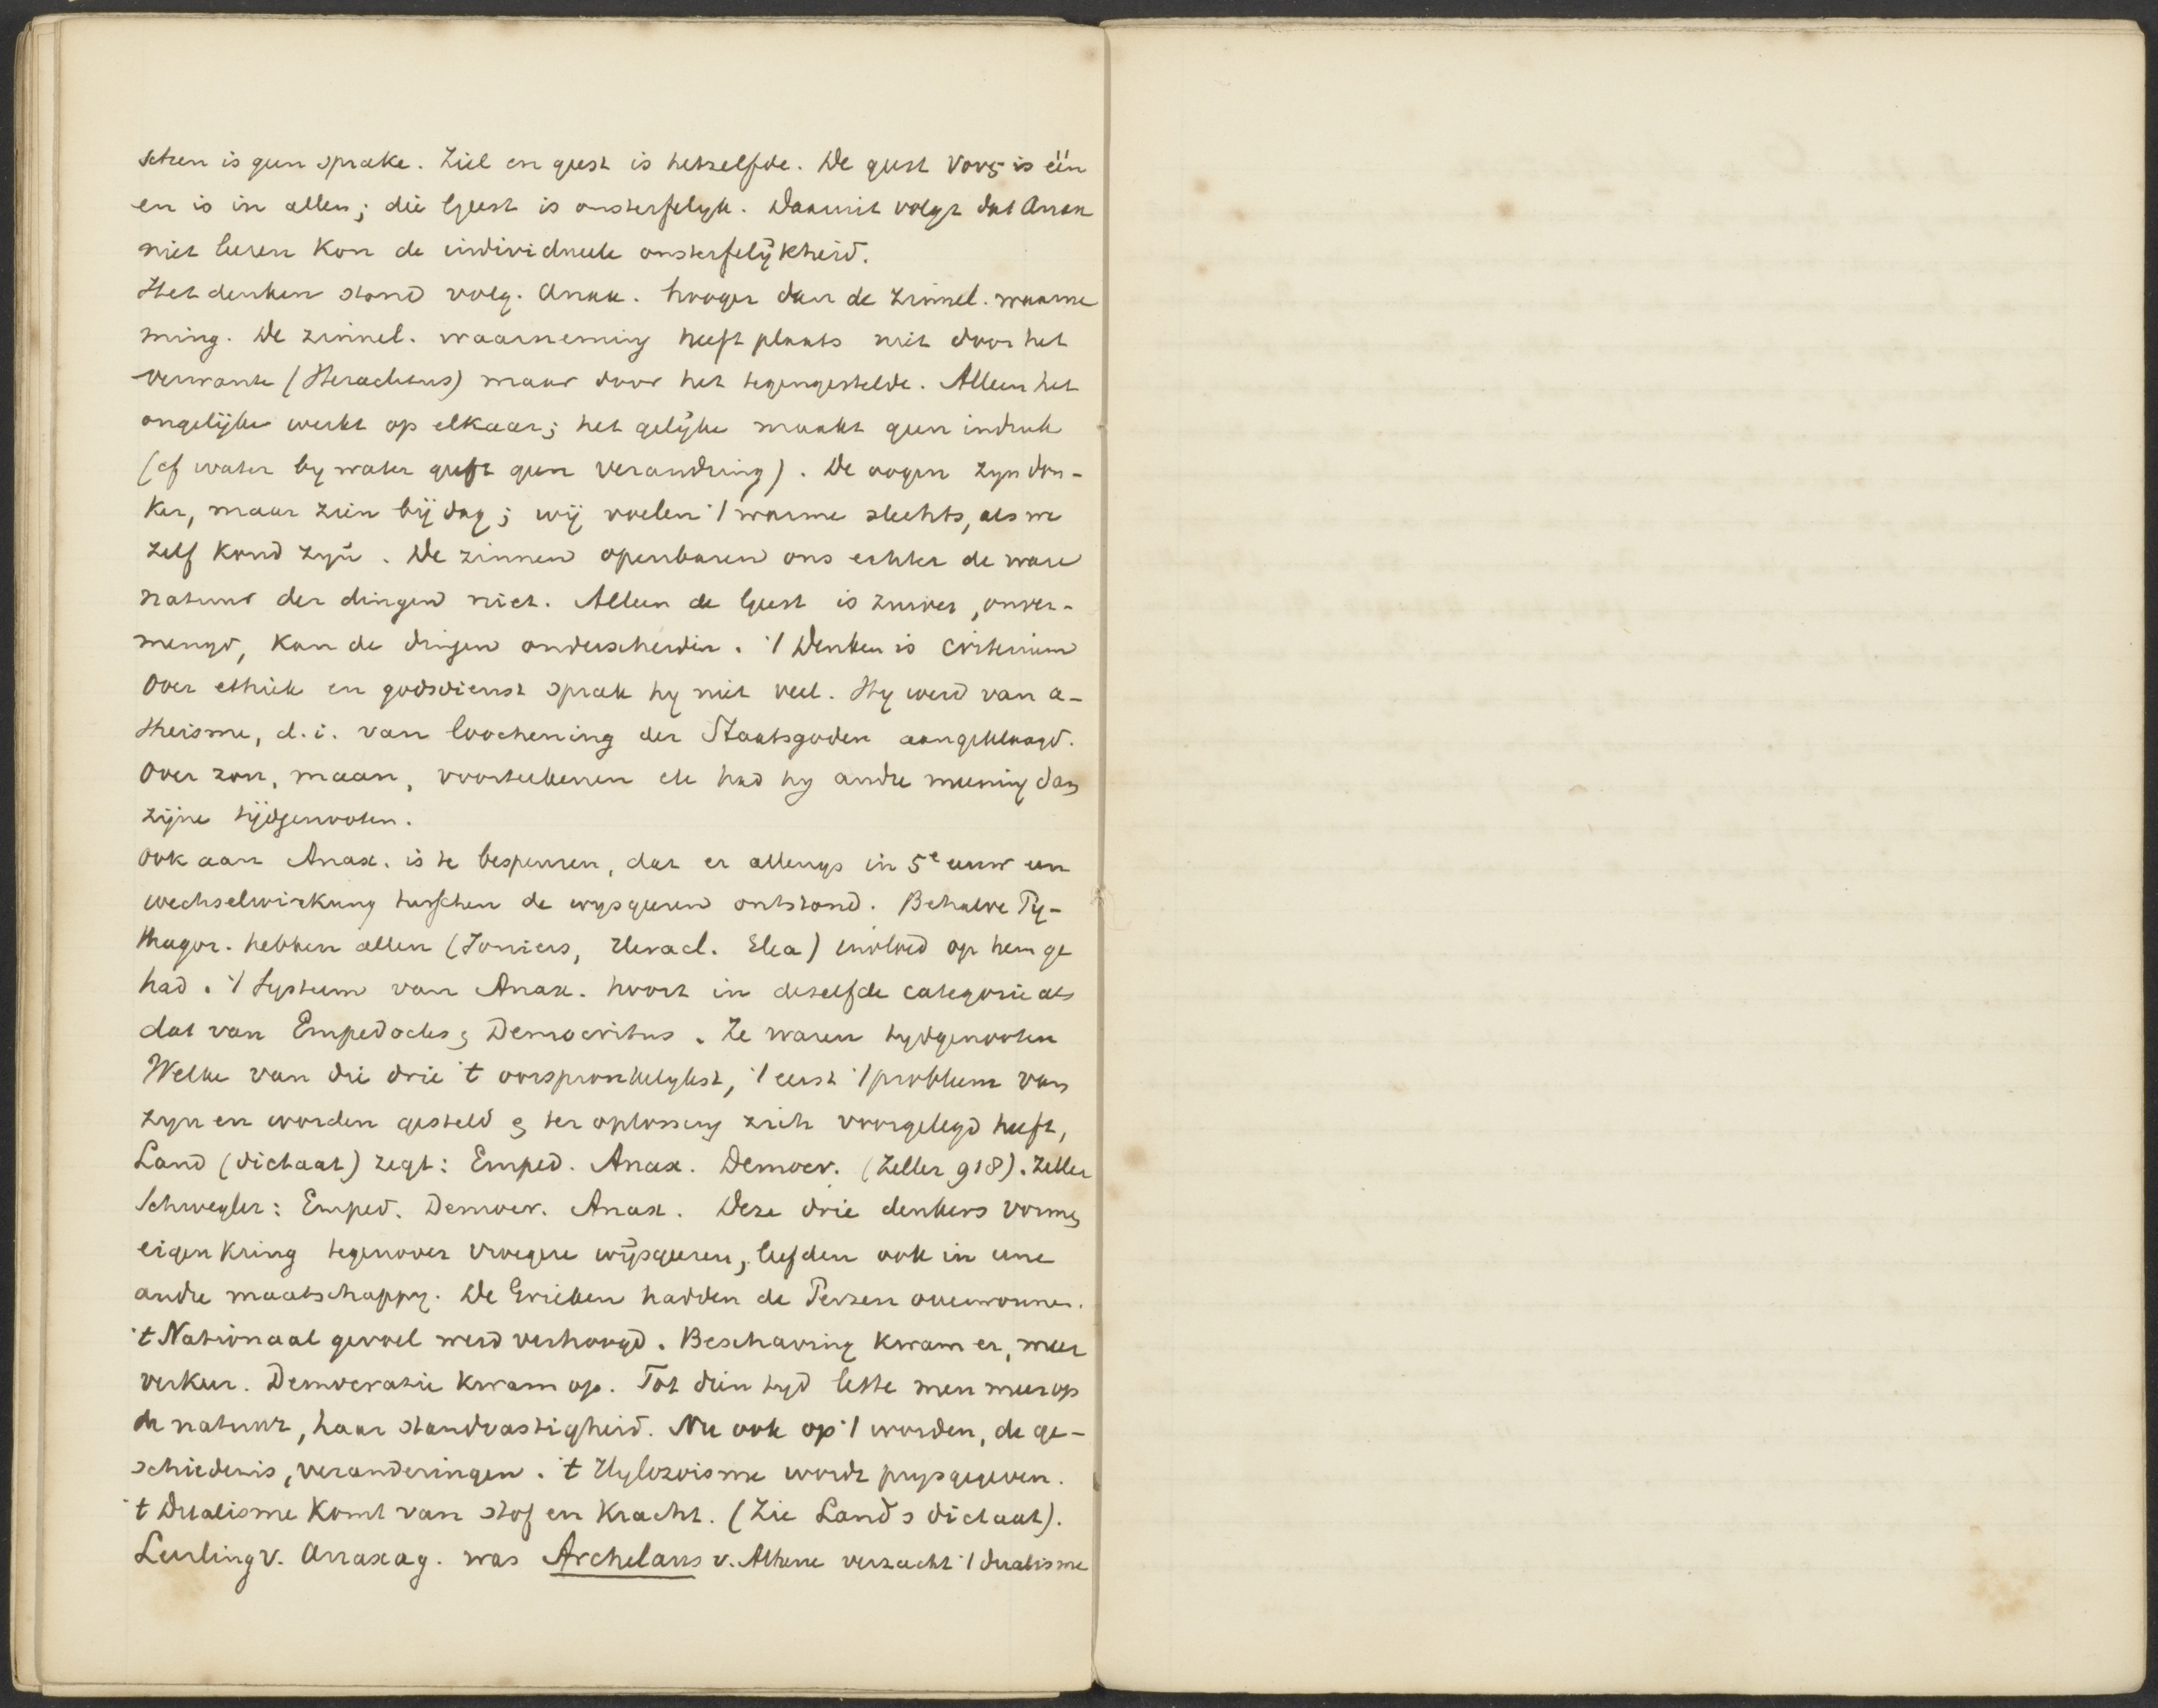 schen is geen sprake. Ziel en geest is hetzelfde. De geest νους is één
en is in allen; die Geest is onsterfelyk. Daaruit volgt dat Anax
niet leeren kon de individueele onsterfelijkheid.
Het denken stond volg. Anax. hooger dan de zinnel. waarne
ming. De zinnel. waarneming heeft plaats niet door het
verwante (Heraclitus) maar door het tegengestelde. Alleen het
ongelijke werkt op elkaar; het gelijke maakt geen indruk
(cf water by water geeft geen verandring). De oogen zyn don-
ker, maar zien bij dag; wij voelen 't warme slechts, als we
zelf koud zyn. De zinnen openbaren ons echter de ware
natuur der dingen niet. Alleen de Geest is zuiver, onver-
mengd, kan de dingen onderscheiden. 't Denken is criterium
Over ethiek en godsdienst sprak hy niet veel. Hy werd van a-
theisme, d.i. van loochening der Staatsgoden aangeklaagd.
Over zon, maan, voorteekenen etc had hy andre meening dan
zijne tijdgenooten.
Ook aan Anax. is te bespeuren, dat er allengs in 5e eeuw een
wechselwirkung tusschen de wysgeeren ontstond. Behalve Py-
thagor. hebben allen (Joniers, Heracl. Elea) invloed op hem ge
had. 't Systeem van Anax. hoort in dezelfde categorie als
dat van Empedocles & Democritus. Ze waren tydgenooten
Welke van die drie 't oorspronkelykst, 't eerst 't probleem van
zyn en worden gesteld & ter oplossing zich voorgelegd heeft,
Land (dictaat) zegt: Emped. Anax. Democr. (Zeller 918). Zeller
Schwegler: Emped. Democr. Anax. Deze drie denkers vormen
eigen kring tegenover vroegere wijsgeeren, leefden ook in eene
andre maatschappy. De Grieken hadden de Perzen overwonnen.
't Nationaal gevoel werd verhoogd. Beschaving kwam er, meer
verkeer. Democratie kwam op. Tot dien tyd lette men meer op
de natuur, haar standvastigheid. Nu ook op 't worden, de ge-
schiedenis, veranderingen. 't Hylozoisme wordt prysgegeven.
't Dualisme komt van stof en kracht. (Zie Lands dictaat).
Leerling v. Anaxag. was Archelaus v. Athene verzacht 't dualisme